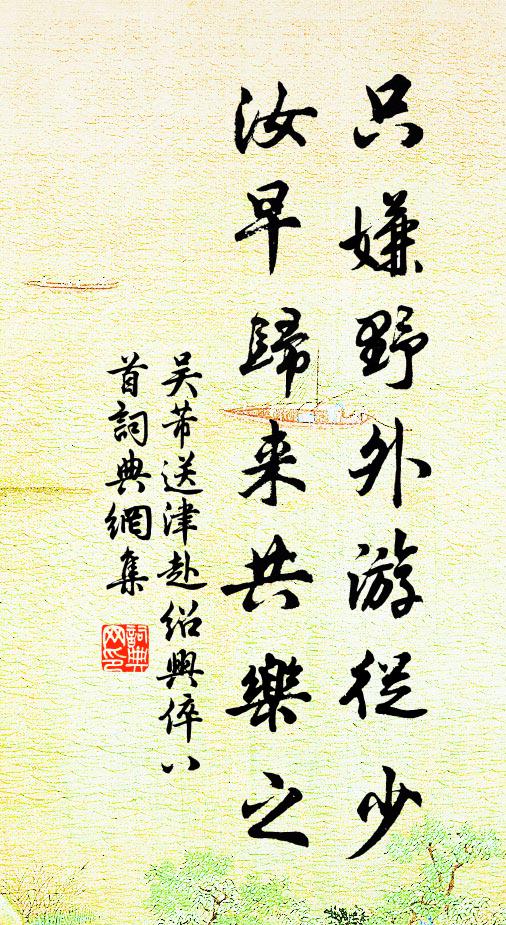 只嫌野外游從少
汝早歸来共樂之
吴芾送津赴紹興倅八
首詞典網集
詞典
网印